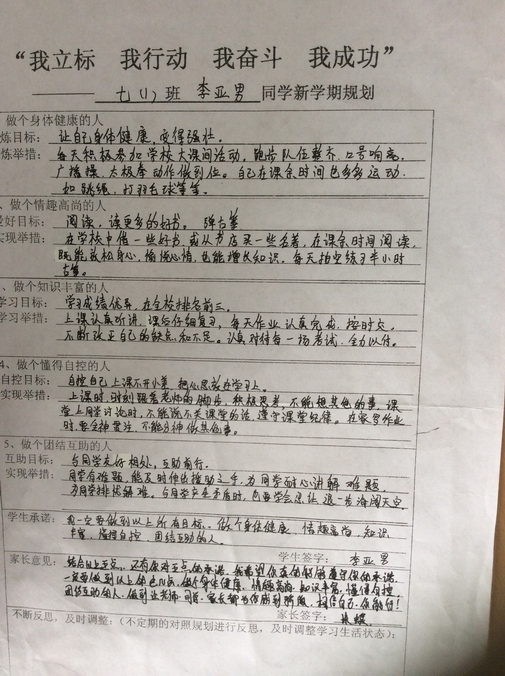 “我立标 我行动 我奋斗 我成功”
七(1)班 李亚男 同学新学期规划
、做个身体健康的人
炼目标: 让自己身体健康,变得强壮。
炼举措: 每天积极参加学校大课间活动,跑步队伍整齐,口号响亮,
广播操、太极拳动作做到位。自己在课余时间也多多运动,
如跳绳,打羽毛球等等。
、做个情趣高尚的人
爱好目标: 阅读,读更多的好书。 弹古筝
实现举措: 在学校中借一些好书,或从书店买一些名著,在课余时间阅读,
既能放松身心,愉悦心情,也能增长知识,每天抽空练习半小时
古筝。
、做个知识丰富的人
学习目标: 学习成绩优异,在全校排名前三。
学习举措: 上课认真听讲,课后仔细复习,每天作业认真完成,按时交。
不断改正自己的缺点和不足。认真对待每一场考试,全力以赴。
4、做个懂得自控的人
自控目标: 自控自己上课不开小差,把心思放在学习上。
实现举措: 上课时,时刻跟着老师的脚步,积极思考,不能想其他的事,课
堂上同学讨论时,不能说不关课堂的话,遵守课堂纪律。在家写作业
时,要全神贯注,不能分神做其他事。
5、做个团结互助的人
互助目标: 与同学友好相处,互助前行。
实现举措: 同学有难题,能及时伸出援助之手,为同学耐心讲解难题,
为同学排忧解难。与同学产生矛盾时,也要学会忍让,退一步海阔天空。
学生承诺: 我一定要做到以上所有目标,做个身体健康,情趣高尚,知识
丰富,懂得自控,团结互助的人。
学生签字: 李亚男
家长意见: 结合以上五点,还有你对五点的承诺,我希望你真的能够遵守你的承诺,
一定要做到以上几点,做个身体健康,情趣高尚,知识丰富,懂得自控,
团结互助的人。做到让老师、同学、家长都为你感到骄傲,相信自己,你能行!
家长签字:
不断反思,及时调整:(不定期的对照规划进行反思,及时调整学习生活状态):